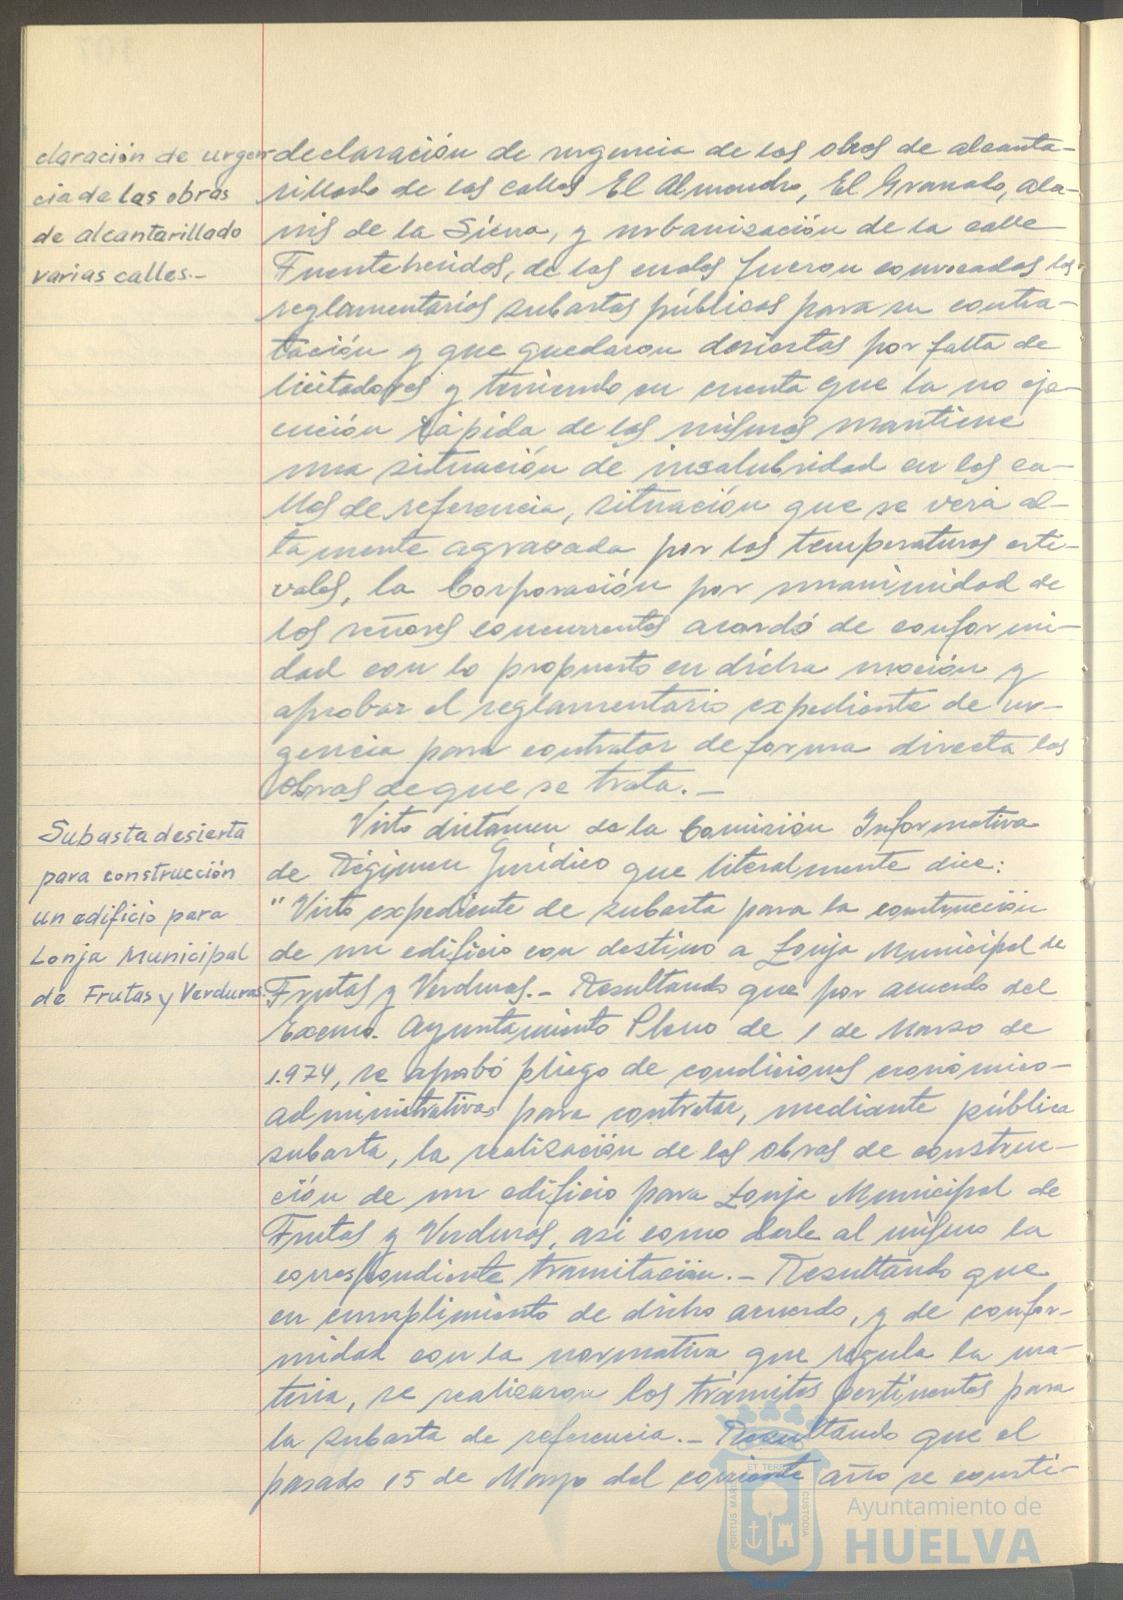 claración de urgen-
cia de las obras
de alcantarillado
varias calles.-
declaración de urgencia de las obras de alcanta-
rillado de las calles El Almendro, El Granado, Ala-
nis de la Sierra, y urbanización de la calle
Fuenteheridos, de las cuales fueron convocadas las
reglamentarias subastas públicas para su contra-
tación y que quedaron desiertas por falta de
licitadores y teniendo en cuenta que la no eje-
cución rápida de las mismas mantiene
una situación de insalubridad en las ca-
lles de referencia, situación que se verá al-
tamente agravada por las temperaturas esti-
vales, la Corporación por unanimidad de
los señores concurrentes acordó de conformi-
dad con lo propuesto en dicha moción y
aprobar el reglamentario expediente de ur-
gencia para contratar de forma directa las
obras de que se trata.-
Subasta desierta
para construcción
un edificio para
Lonja Municipal
de Frutas y Verduras
Visto dictámen de la Comisión Informativa
de Régimen Jurídico que literalmente dice:
"Visto expediente de subasta para la construcción
de un edificio con destino a Lonja Municipal de
Frutas y Verduras.- Resultando que por acuerdo del
Excmo. Ayuntamiento Pleno de 1 de Marzo de
1.974, se aprobó pliego de condiciones económico-
administrativas para contratar, mediante pública
subasta, la realización de las obras de construc-
ción de un edificio para Lonja Municipal de
Frutas y Verduras, asi como darle al mismo la
correspondiente tramitación.- Resultando que
en cumplimiento de dicho acuerdo, y de confor-
midad con la normativa que regula la ma-
teria, se realizaron los trámites pertinentes para
la subasta de referencia.- Resultando que el
pasado 15 de Mayo del corriente año se consti-
PORTUS MARIS ET TERRAE CUSTODIA
Ayuntamiento de
HUELVA